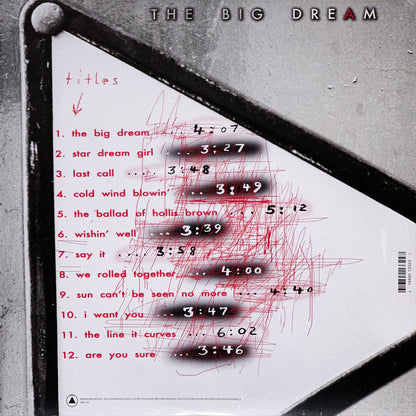 THE BIG DREAM
titles
1. the big dream .... 4:07
2. star dream girl .... 3:27
3. last call .... 3:48
4. cold wind blowin' .... 3:49
5. the ballad of hollis brown .... 5:12
6. wishin' well .... 3:39
7. say it .... 3:58
8. we rolled together .... 4:00
9. sun can't be seen no more .... 4:40
10. i want you .... 3:47
11. the line it curves .... 6:02
12. are you sure .... 3:46